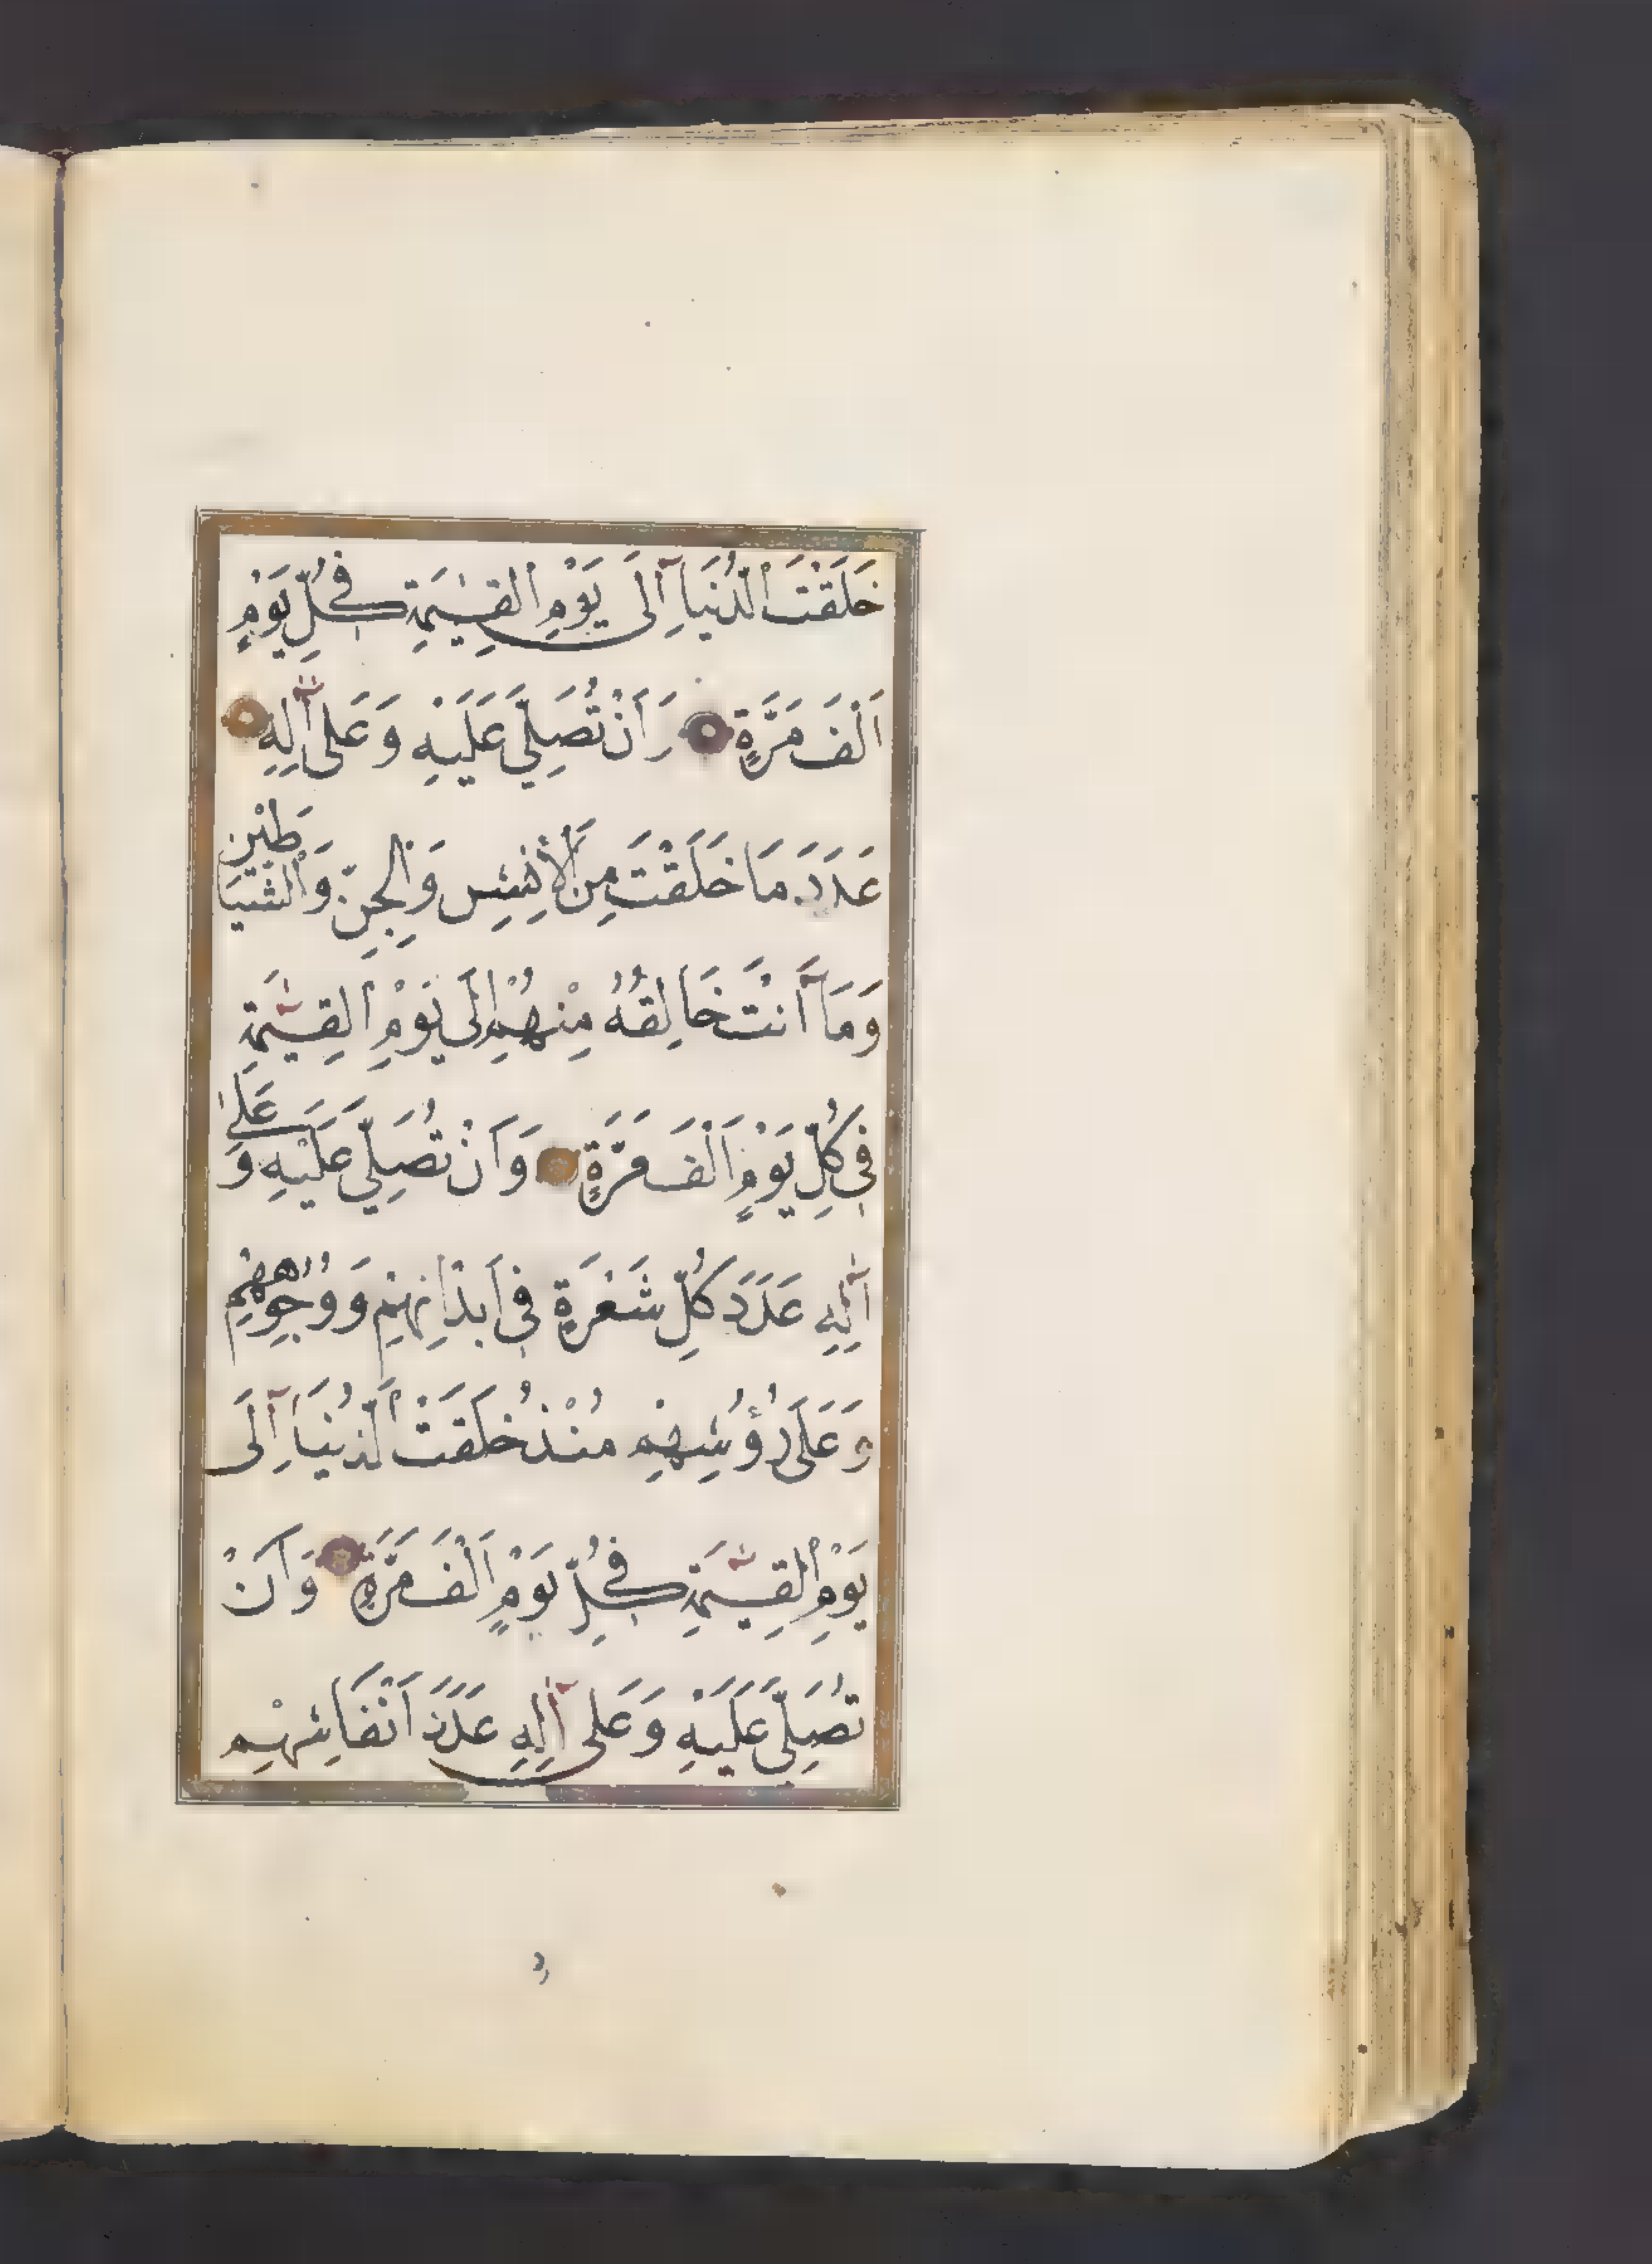 خَلَقْتَ الدُّنْيَا اِلَى يَوْمِ الْقِيٰمَةِ فِي كُلِّ يَوْمٍ
اَلْفَ مَرَّةٍ وَ اَنْ تُصَلِّيَ عَلَيْهِ وَ عَلَى اٰلِهِ
عَدَدَ مَا خَلَقْتَ مِنَ الْاِنْسِ وَالْجِنِّ وَالشَّيَاطِيْنِ
وَمَا اَنْتَ خَالِقُهُ مِنْهُمْ اِلَى يَوْمِ الْقِيٰمَةِ
فِي كُلِّ يَوْمٍ اَلْفَ مَرَّةٍ وَ اَنْ تُصَلِّيَ عَلَيْهِ وَعَلَى
اٰلِهِ عَدَدَ كُلِّ شَعْرَةٍ فِي اَبْدَانِهِمْ وَ وُجُوهِهِمْ
وَعَلَى رُؤُسِهِمْ مُنْذُ خَلَقْتَ الدُّنْيَا اِلَى
يَوْمِ الْقِيٰمَةِ فِي كُلِّ يَوْمٍ اَلْفَ مَرَّةٍ وَ اَنْ
تُصَلِّيَ عَلَيْهِ وَ عَلَى اٰلِهِ عَدَدَ اَنْفَاسِهِمْ